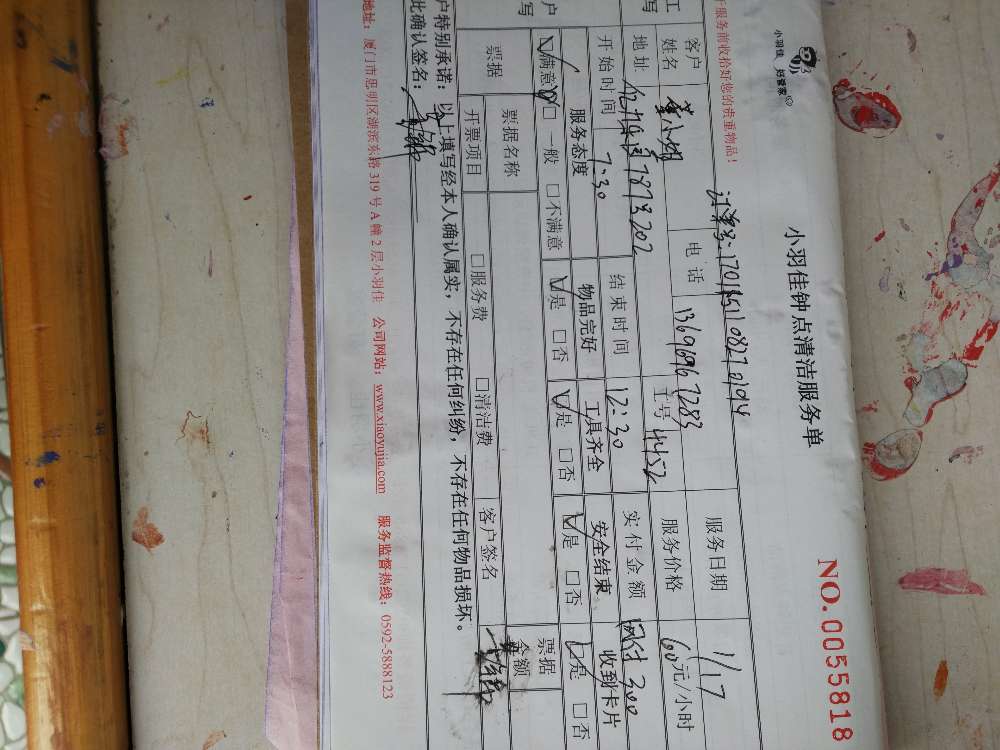 小羽佳 好管家
小羽佳钟点清洁服务单
NO.0055818
开服务前收拾好您的贵重物品!
订单号:
客户姓名 电话 13696967283 服务日期 1/17
地址 工号 4452 服务价格 60元/小时
开始时间 7:30 结束时间 12:30 实付金额 300
服务态度 物品完好 工具齐全 安全结束 收到卡片
满意 □ 一般 □ 不满意 是 □ 否 是 □ 否 是 □ 否 是 □ 否
票据 票据名称 票据金额
开票项目 □ 服务费 □ 清洁费 客户签名
户特别承诺: 以上填写经本人确认属实,不存在任何纠纷,不存在任何物品损坏。
此确认签名:
地址: 厦门市思明区湖滨东路319号A幢2层小羽佳 公司网站: www.xiaoyujia.com 服务监督热线: 0592-5888123